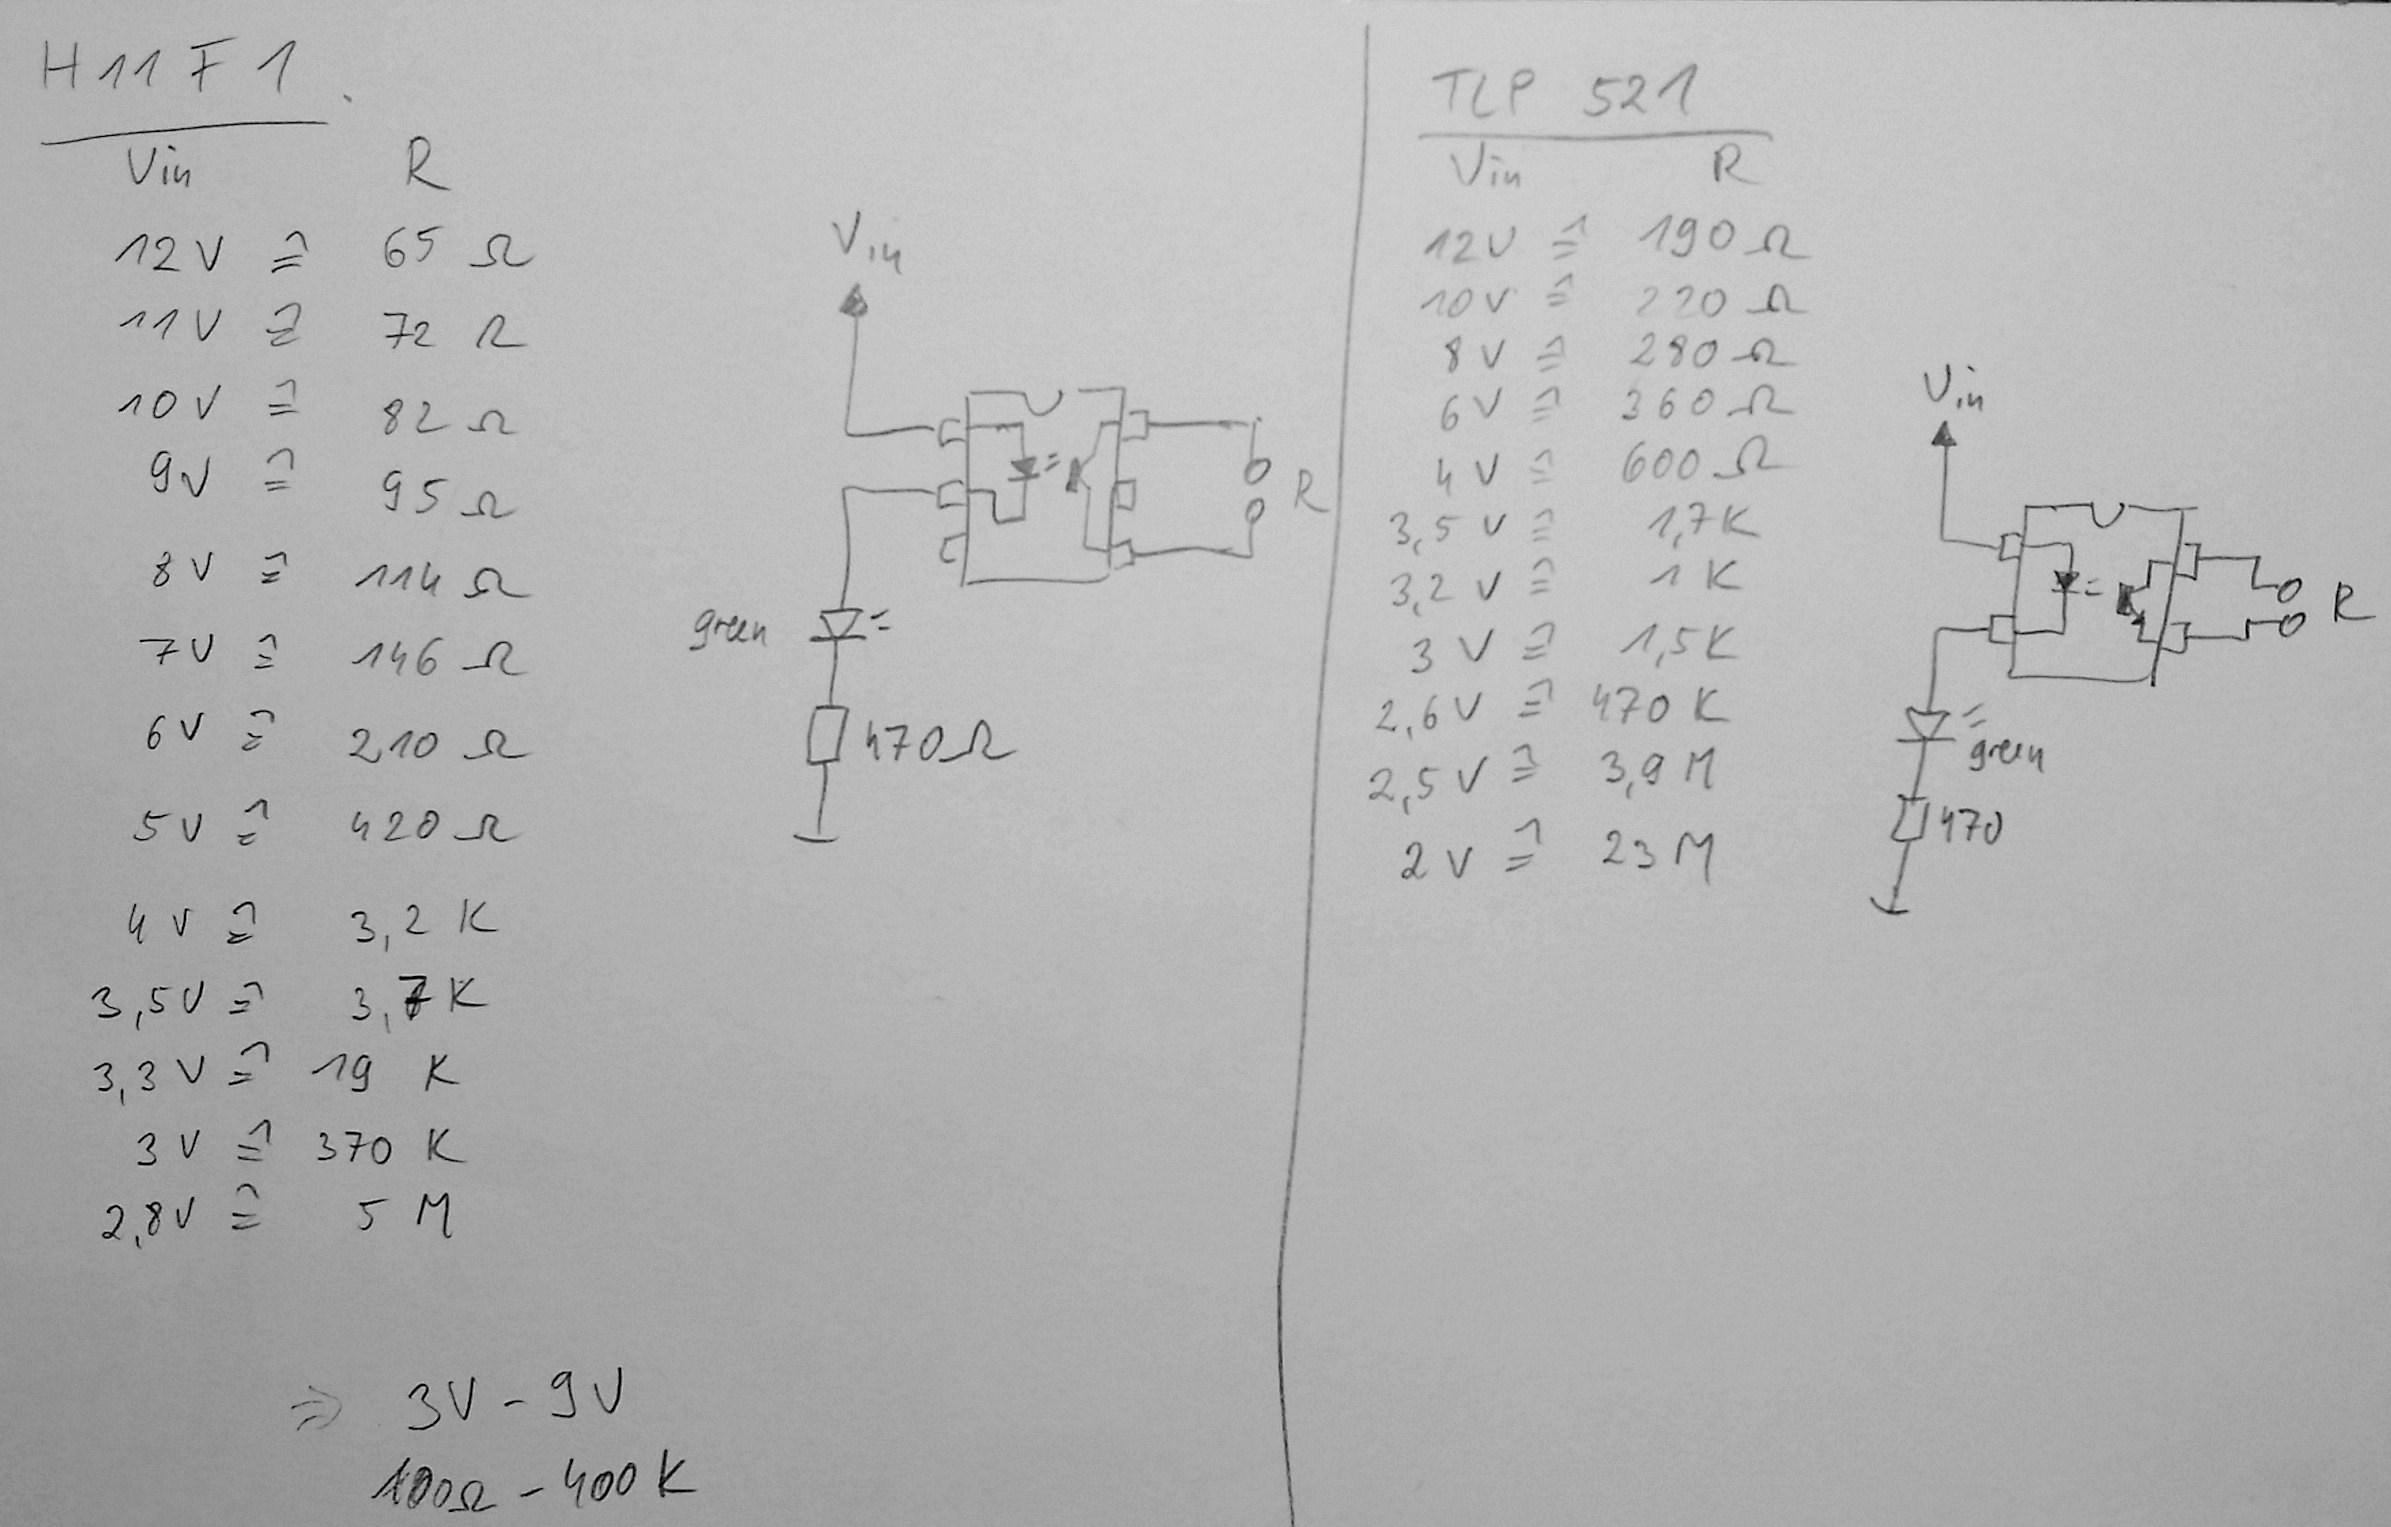 H11F1.
Vin R
12V ≙ 65 Ω
11V ≙ 72 Ω
10V ≙ 82 Ω
9V ≙ 95 Ω
8V ≙ 114 Ω
7V ≙ 146 Ω
6V ≙ 210 Ω
5V ≙ 420 Ω
4V ≙ 3,2 K
3,5V ≙ 3,7 K
3,3V ≙ 19 K
3V ≙ 370 K
2,8V ≙ 5 M
⇒ 3V - 9V
100Ω - 400K
Vin
R
green
470Ω
TLP 521
Vin R
12V ≙ 190 Ω
10V ≙ 220 Ω
8V ≙ 280 Ω
6V ≙ 360 Ω
4V ≙ 600 Ω
3,5V ≙ 1,7K
3,2V ≙ 1K
3V ≙ 1,5K
2,6V ≙ 470K
2,5V ≙ 3,9M
2V ≙ 23M
Vin
R
green
470